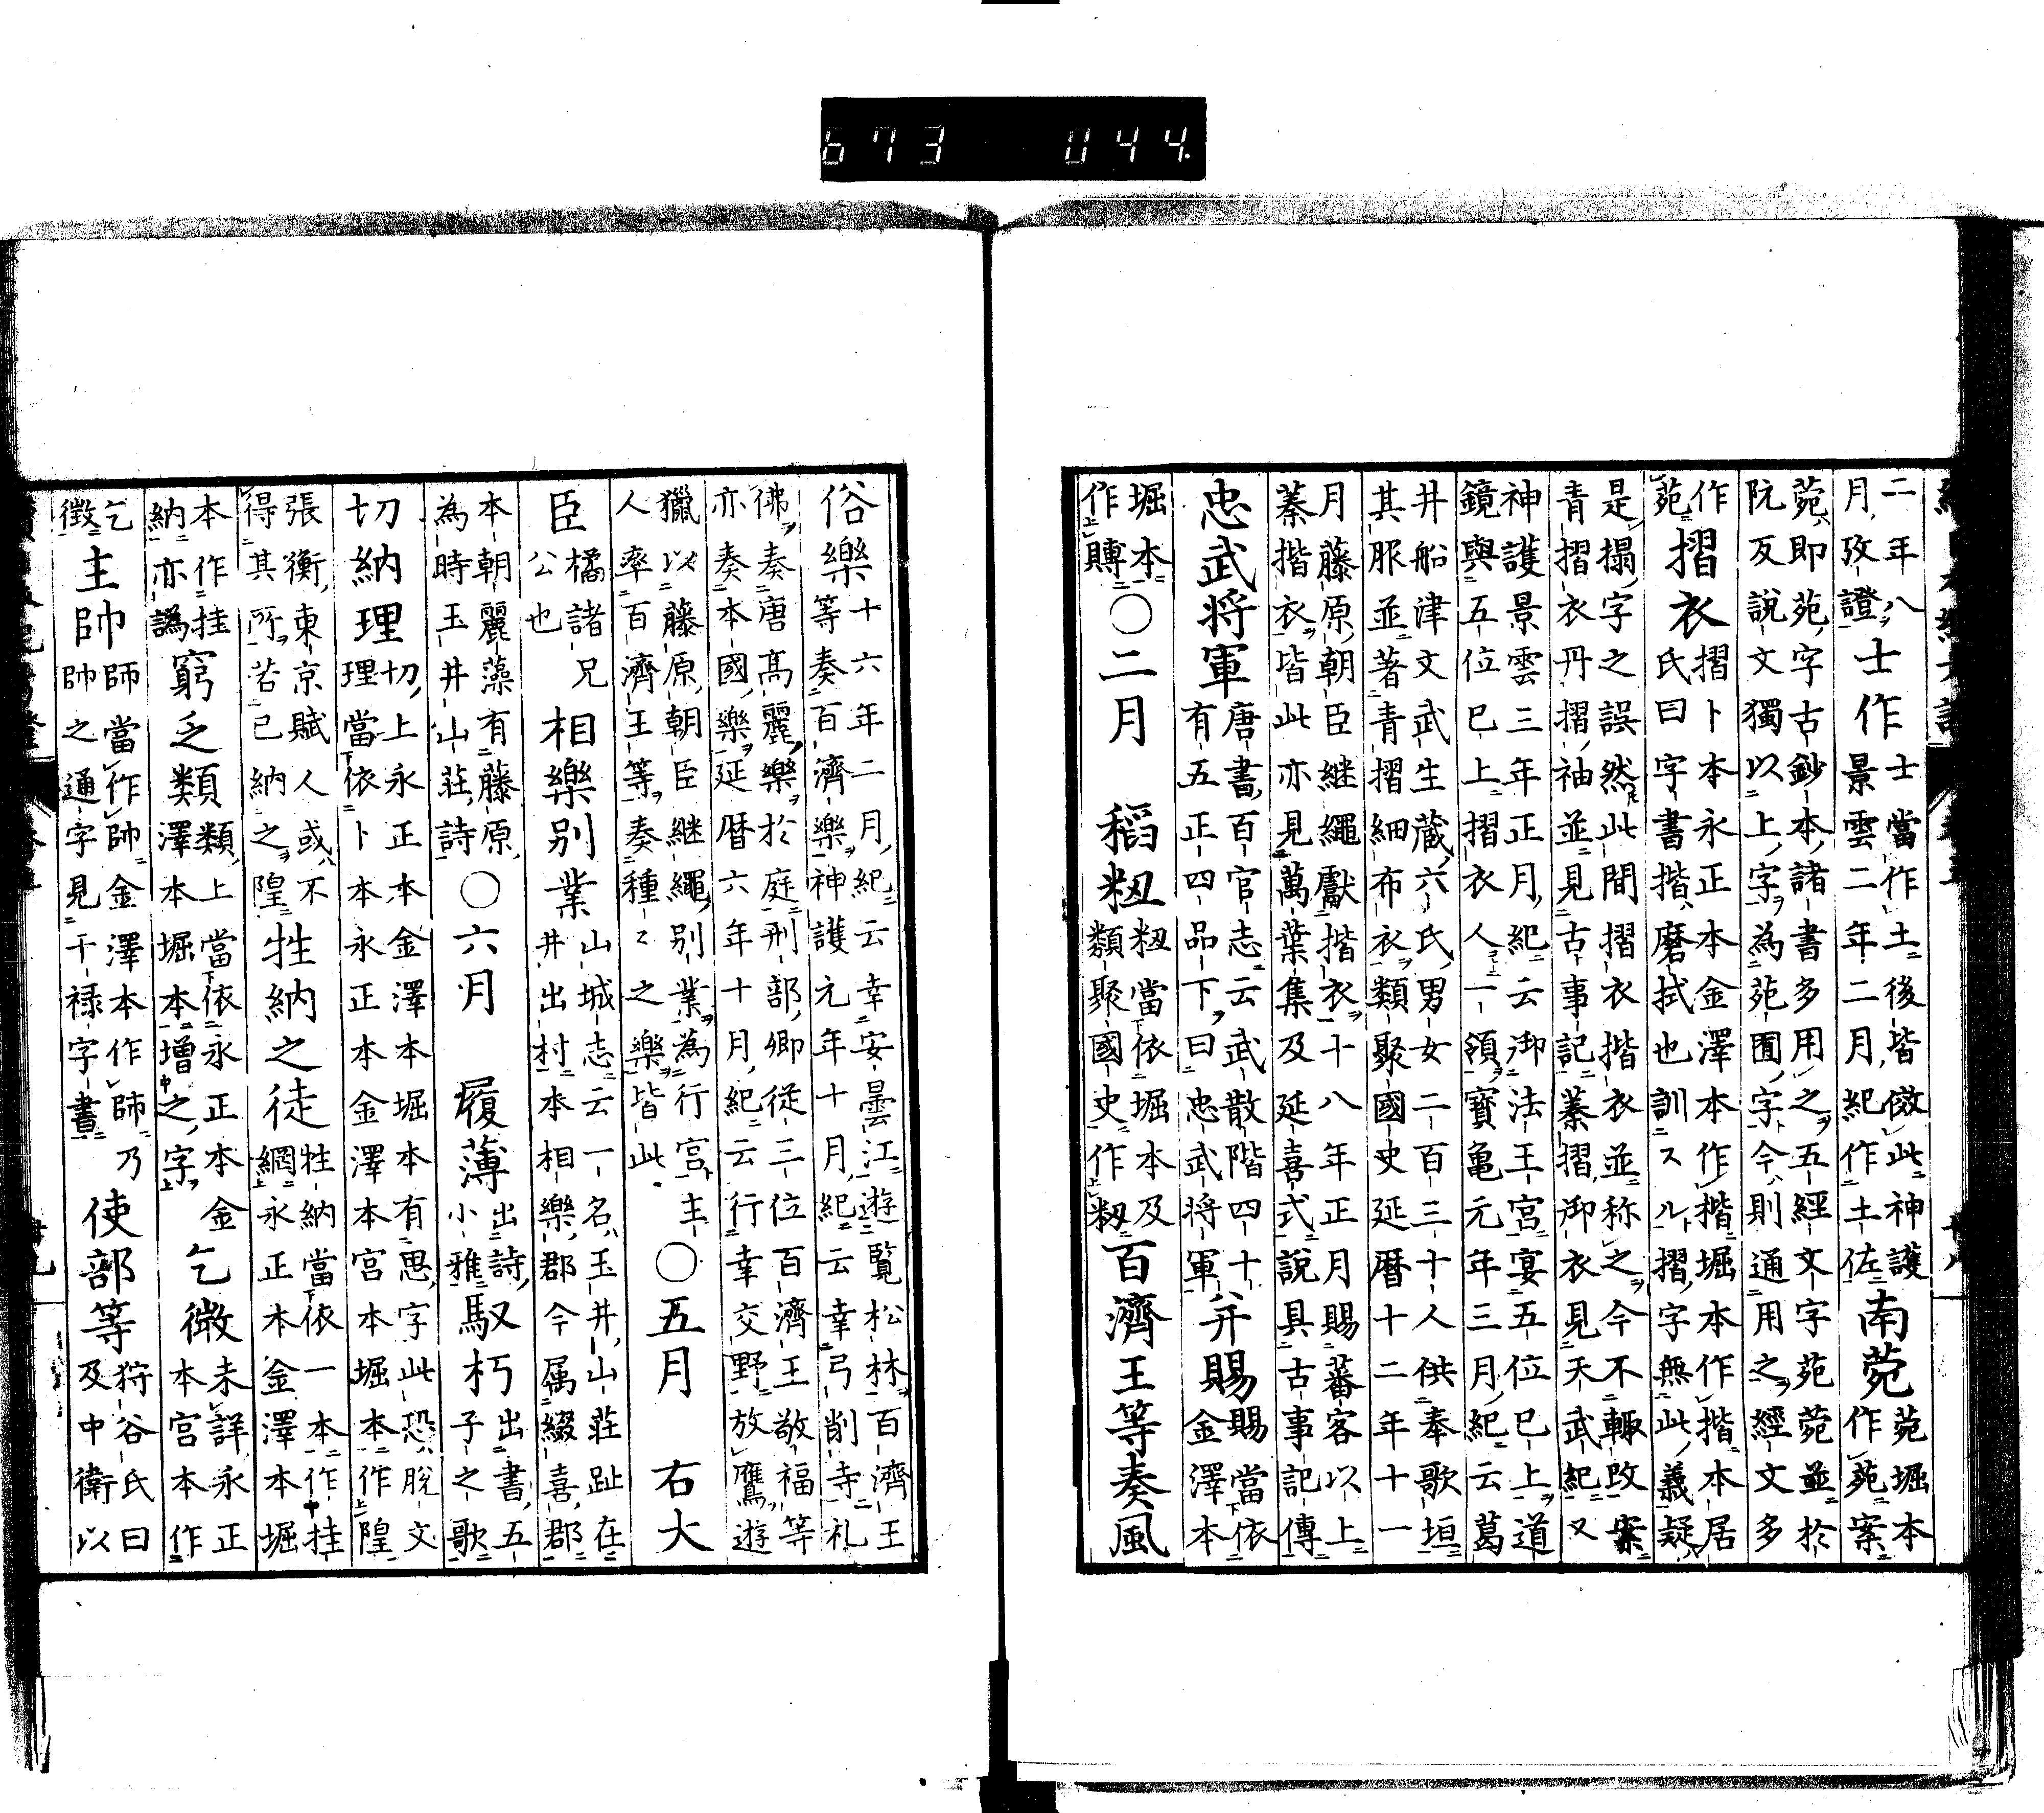 二年八
月攷證
士作
士當作土後皆倣此神護
景雲二年二月紀作土佐
南菀
菀堀本
作苑案
菀即苑字古鈔本諸書多用之五經文字苑菀並於
阮反說文獨以上字為苑囿字今則通用之經文多
作
苑
摺衣
摺卜本永正本金澤本作楷堀本作揩本居
氏曰字書揩磨拭也訓スルト摺字無此義疑
是搨字之誤然此間摺衣揩衣並称之今不輙改案
青摺衣丹摺袖並見古事記蓁摺御衣見天武紀又
神護景雲三年正月紀云御法王宮宴五位已上道
鏡與五位已上摺衣人一領寶亀元年三月紀云葛
井船津文武生藏六氏男女二百三十人供奉歌垣
其服並著青摺細布衣類聚國史延暦十二年十一
月藤原朝臣継繩獻揩衣十八年正月賜蕃客以上
蓁揩衣皆此亦見萬葉集及延喜式説具古事記傳
忠武将軍
唐書百官志云武散階四十
有五正四品下曰忠武将軍
并賜
賜當依
金澤本
堀本
作賻
〇二月 稻籾
籾當依堀本及
類聚國史作籾
百濟王等奏風
俗樂
十六年二月紀云幸安曇江遊覧松林百濟王
等奏百濟樂神護元年十月紀云幸弓削寺礼
佛奏唐高麗樂於庭刑部卿従三位百濟王敬福等
亦奏本國樂延暦六年十月紀云行幸交野放鷹遊
獵以藤原朝臣継繩別業為行宮主
人率百濟王等奏種〻之樂皆此
〇五月 右大
臣
橘諸兄
公也
相樂別業
山城志云一名玉井山荘趾在
井出村本相樂郡今属綴喜郡
本朝麗藻有藤原
為時玉井山荘詩
〇六月 履薄
出詩
小雅
馭朽
出書五
子之歌
切納理
切上永正本金澤本堀本有思字此恐脫文
理當依卜本永正本金澤本宮本堀本作隍
張衡東京賦人或不
得其所若已納之隍
牲納之徒
牲納當依一本作挂
網永正本金澤本堀
本作挂
納亦譌
窮乏類
類上當依永正本金
澤本堀本增之字
乞微
未詳永正
本宮本作
乞
徴
主帥
師當作帥金澤本作師乃
帥之通字見干禄字書
使部等
狩谷氏曰
及中衛以
673 044.